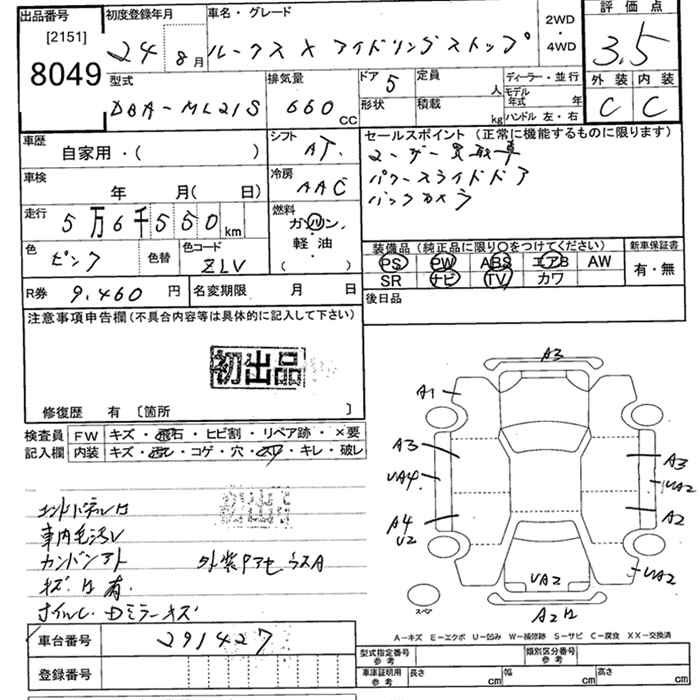 出品番号 初度登録年月 車名・グレード 2WD・4WD 評価点
[2151]
8049 24 8月 ルークス X アイドリングストップ 3.5
型式 排気量 ドア 5 定員 人 ディーラー・並行 外装 内装
DBA-ML21S 660 CC 形状 積載 kg モデル年式 年 C C
ハンドル 左・右
車歴 自家用・( ) シフト AT. セールスポイント (正常に機能するものに限ります)
車検 年 月( 日) 冷房 AAC
パワースライドドア
バックカメラ
走行 5万6千550km 燃料 ガソリン・軽油・( )
色 ピンク 色替 色コード ZLV
装備品 (純正品に限り○をつけてください) 新車保証書
PS PW ABS エアB AW 有・無
SR ナビ TV カワ
R券 9,460円 名変期限 月 日 後日品
注意事項申告欄(不具合内容等は具体的に記入して下さい)
初出品
修復歴 有 [箇所 ]
検査員 FW キズ・飛石・ヒビ割・リペア跡・×要
記入欄 内装 キズ・汚レ・コゲ・穴・スレ・キレ・破レ
A3
A1
A3 A3
UA4. UA2
A4 A2
U2
UA2 UA2
スペア
A2
車内毛汚レ
キズ 有
A−キズ E−エクボ U−凹み W−補修跡 S−サビ C−腐食 XX−交換済
車台番号 291427
登録番号
型式指定番号 参考 類別区分番号 参考
車庫証明用 参考 長さ cm 幅 cm 高さ cm